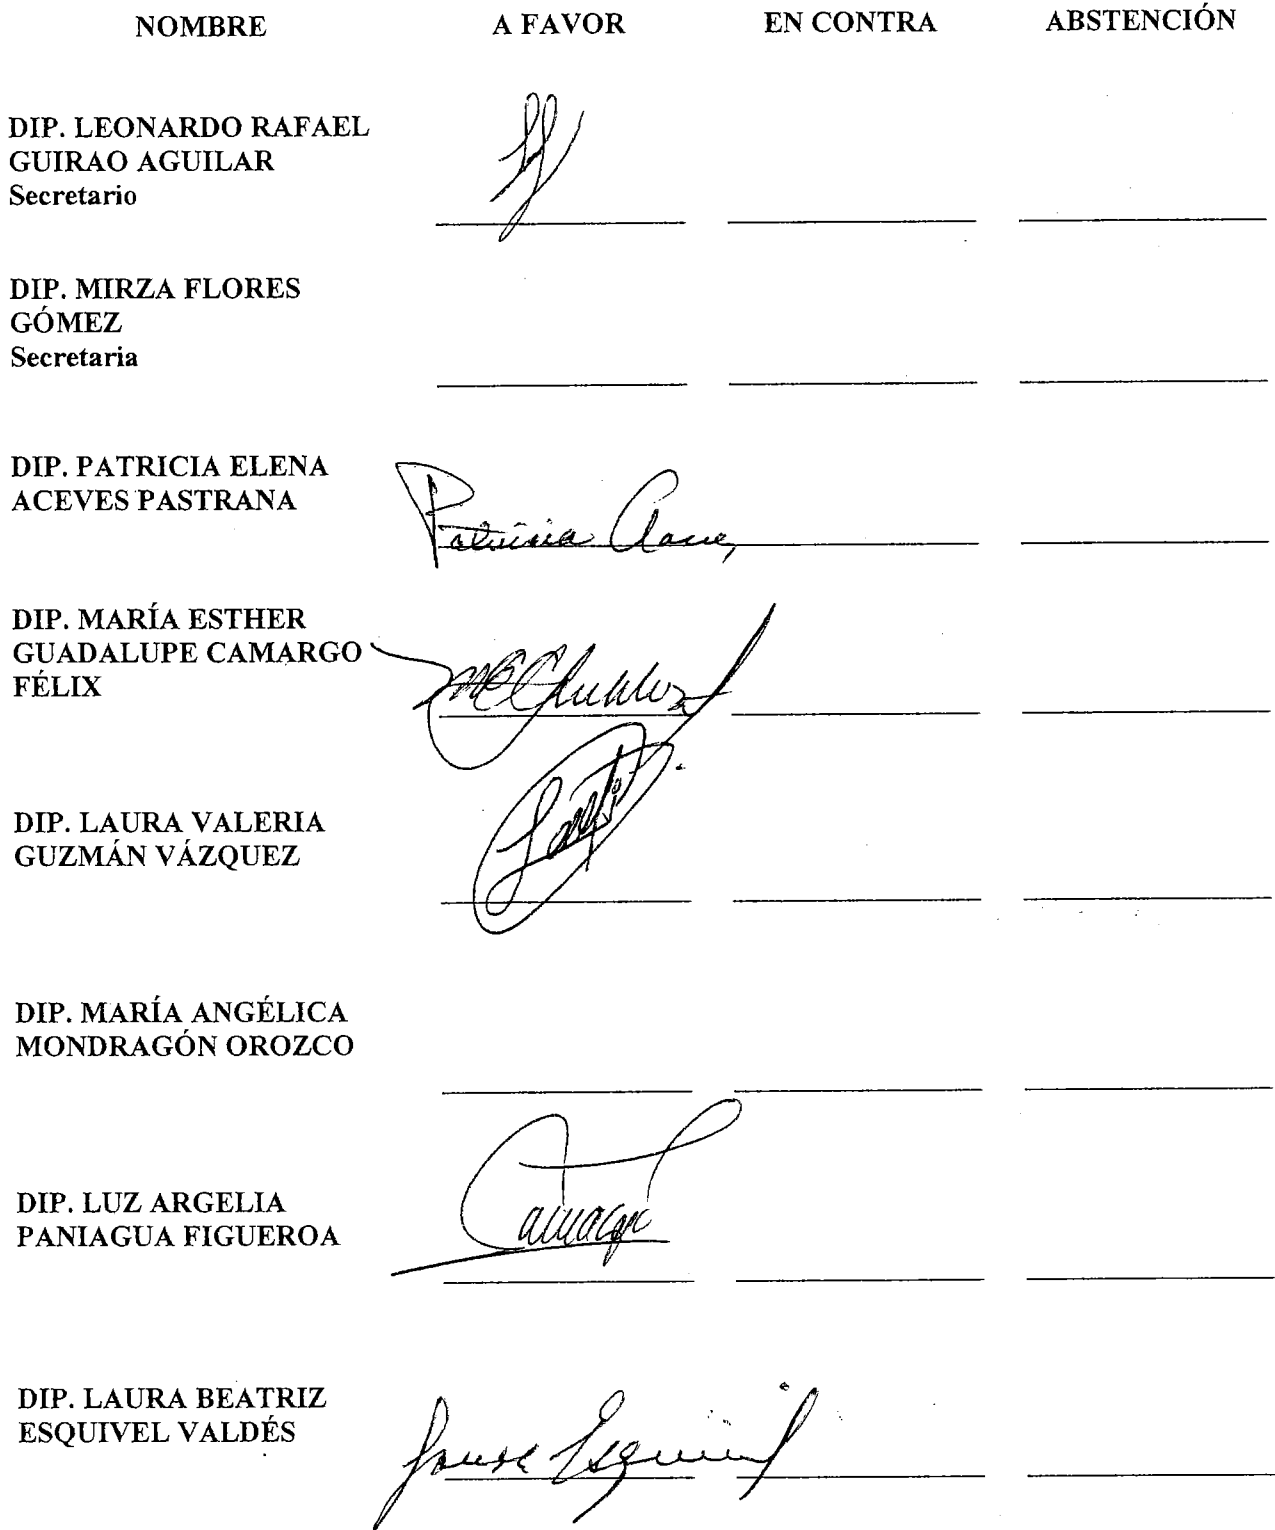 NOMBRE A FAVOR EN CONTRA ABSTENCIÓN
DIP. LEONARDO RAFAEL
GUIRAO AGUILAR
Secretario
DIP. MIRZA FLORES
GÓMEZ
Secretaria
DIP. PATRICIA ELENA
ACEVES PASTRANA
Patricia
DIP. MARÍA ESTHER
GUADALUPE CAMARGO
FÉLIX
DIP. LAURA VALERIA
GUZMÁN VÁZQUEZ
DIP. MARÍA ANGÉLICA
MONDRAGÓN OROZCO
DIP. LUZ ARGELIA
PANIAGUA FIGUEROA
DIP. LAURA BEATRIZ
ESQUIVEL VALDÉS
Laura Esquivel